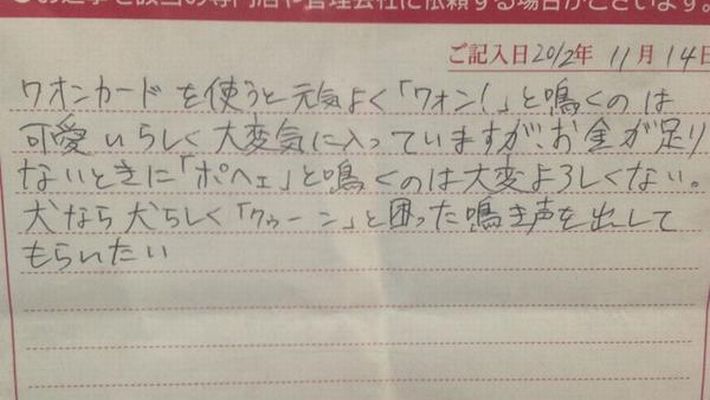 お返事を該当の専門店や管理会社に依頼する場合がございます。
ご記入日2012年 11月 14日
ワオンカードを使うと元気よく「ワォン!」と鳴くのは
可愛いらしく大変気に入っていますが、お金が足り
ないときに「ポヘェ」と鳴くのは大変よろしくない。
犬なら犬らしく「クゥーン」と困った鳴き声を出して
もらいたい